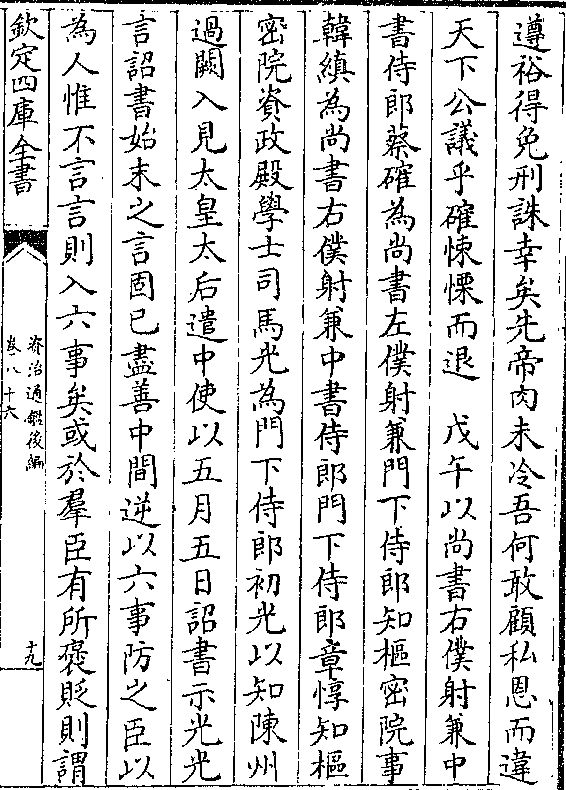 遵裕得免刑誅幸矣先帝肉未冷吾何敢顧私恩而違
天下公議乎確悚慄而退　戊午以尚書右僕射兼中
書侍郎蔡確為尚書左僕射兼門下侍郎知樞密院事
韓縝為尚書右僕射兼中書侍郎門下侍郎章惇知樞
密院資政殿學士司馬光為門下侍郎初光以知陳州
過闕入見太皇太后遣中使以五月五日詔書示光光
言詔書始末之言固已盡善中間逆以六事防之臣以
為人惟不言言則入六事矣或於羣臣有所褒貶則謂
欽定四庫全書
資治通鑑後編
卷八十六
十九